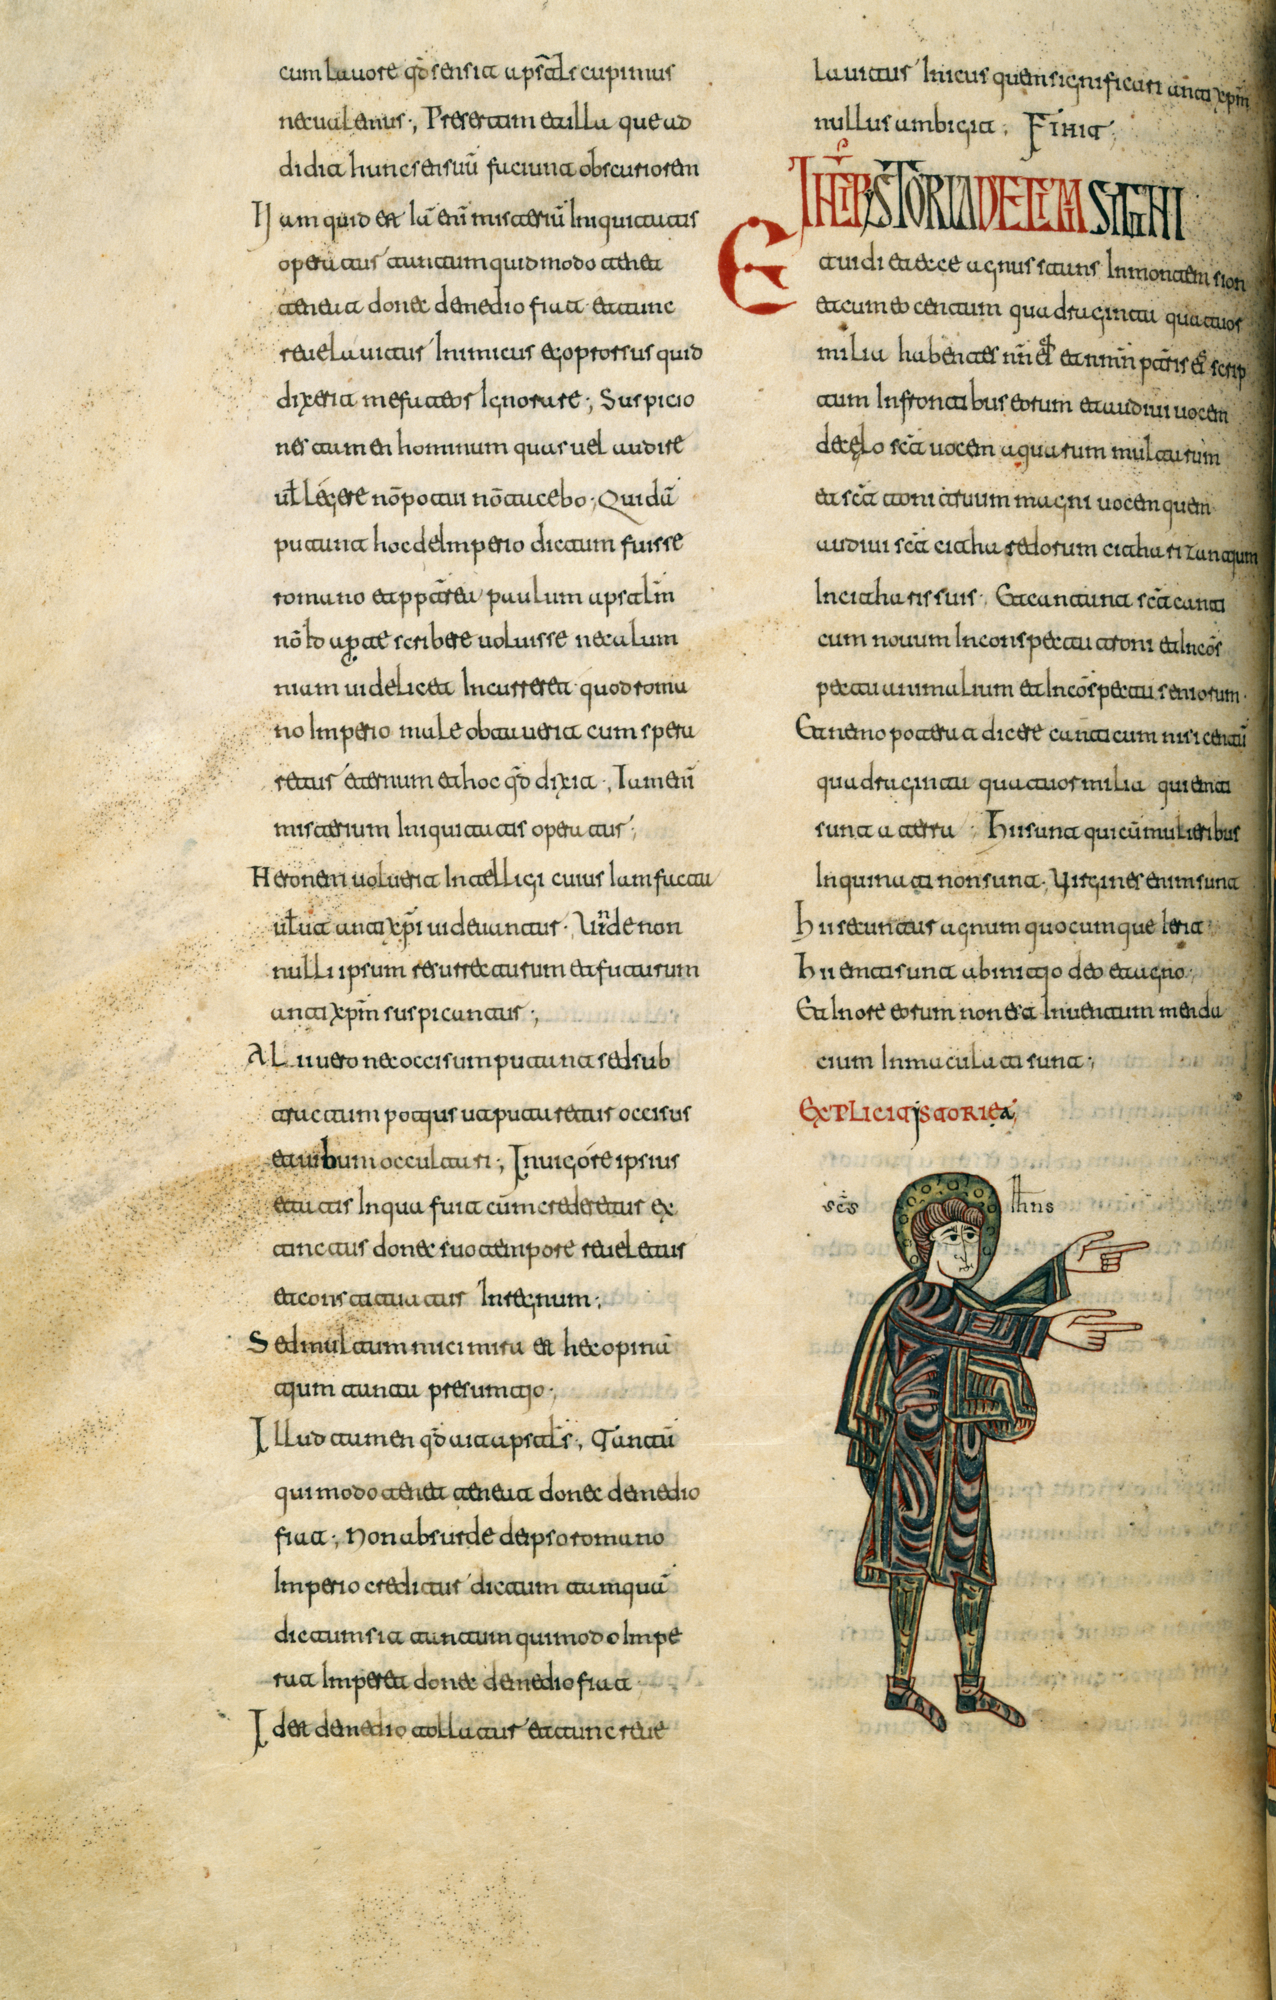 cum lauore qd sensit apstls cupimus
nec ualemus ; Presertim et illa que ad
didit hunc sensuū faciunt obscuriorem
Nam quid est Iā enī misteriū Iniquitatis
operatur tantum qui modo tenet
teneat donec de medio fiat et tunc
reuelauitur Inimicus ego prorsus quid
dixerit me fateor Ignorare ; Suspicio
nes tamen hominum quas uel audire
ut legere nō potui nō tacebo ; Quidā
putant hoc de Imperio dictum fuisse
romano et pptrea paulum apstlm
nō Id aperte scribere uoluisse ne calum
niam uidelicet Incurreret quod roma
no Imperio male obtauerit cum spera
retur eternum et hoc qd dixit ; Iam enī
misterium Iniquitatis operatur ;
Neronem uoluerit Intelligi cuius Iam facta
utlut antixpi uidebantur ; Unde non
nulli ipsum resurrecturum et futurum
antixpm suspicantur ;
Alii uero nec occisum putant sed sub
tractum potius ut putaretur occisus
et uibum occultari ; In uigore ipsius
etatis In qua fuit cūm crederetur ex
tinctus donec suo tempore reueletur
et constituatur In regnum ;
Sed multum mici mira est hec opinā
tium tanta presumtio ;
Illud tamen qd ait apstls ; Tantū
qui modo tenet teneat donec de medio
fiat ; Non absurde de ipso romano
Imperio creditur dictum tamquā
dictum sit tantum qui modo Impe
rat Imperet donec de medio fiat
Id est de medio tollatur et tunc reue
lauitur Inicus quem significari antixpm
nullus ambigit ; Finit ;
INCIP STORIA DE LIM SYGHI
Et uidi et ecce agnus stans In montem sion
et cum eo centum quadraginta quatuor
milia habentes nn eī et nmn patris eī scrip
tum In frontibus eorum et audiui uocem
de celo scā uocem aquarum multarum
et scā tonitruum magni uocem quem
audiui scā citharedorum citharizantium
In citharis suis ; Et cantant scā canti
cum nouum In conspectu troni et In cōs
pectu animalium et In cōspectu seniorum .
Et nemo poterat dicere canticum nisi centū
quadraginta quatuor milia qui enti
sunt a terra Hii sunt qui cū mulieribus
Inquinati non sunt ; Uirgines enim sunt
Hii secuntur agnum quocumque Ierit
Hii emti sunt ab initio deo et agno ;
Et In ore eorum non est Inuentum menda
cium Inmaculati sunt ;
Explicit storiea ;
scs Ihns